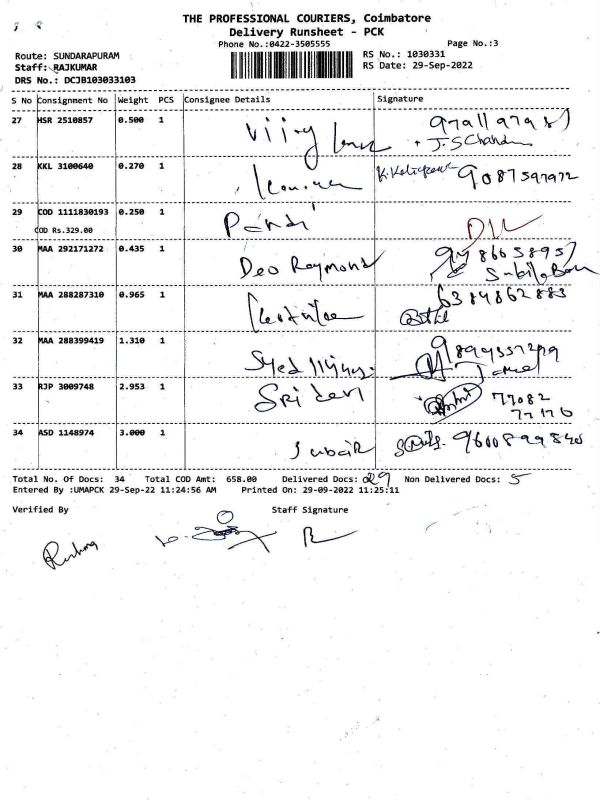 THE PROFESSIONAL COURIERS, Coimbatore
Delivery Runsheet - PCK
Phone No.:0422-3505555
Page No.:3
Route: SUNDARAPURAM
RS No.: 1030331
Staff: RAJKUMAR
RS Date: 29-Sep-2022
DRS No.: DCJB103033103
S No Consignment No Weight PCS Consignee Details Signature
27 HSR 2510857 0.500 1 Vijay
28 KKL 3100640 0.270 1 9087597972
29 COD 1111830193 0.250 1 Pandi
COD Rs.329.00
30 MAA 292171272 0.435 1 Deo Raymond
31 MAA 288287310 0.965 1 6384862883
32 MAA 288399419 1.310 1 Syed
33 RJP 3009748 2.953 1 Sri devi 77082
77176
34 ASD 1148974 3.000 1 Subair 9600899840
Total No. Of Docs: 34 Total COD Amt: 658.00 Delivered Docs: 29 Non Delivered Docs: 5
Entered By :UMAPCK 29-Sep-22 11:24:56 AM Printed On: 29-09-2022 11:25:11
Verified By Staff Signature